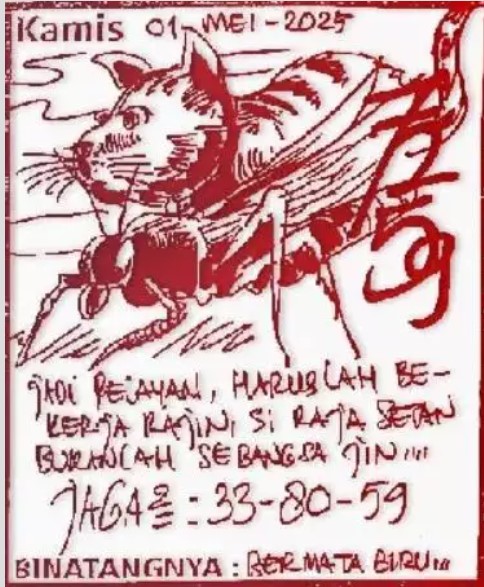 Kamis 01-MEI-2025
JADI PELAYAN, HARUSLAH BE-
KERJA RAJIN, SI RAJA SETAN
BUKANLAH SEBANGSA JIN...
JAGA2 : 33-80-59
BINATANGNYA : BERMATA BIRU...